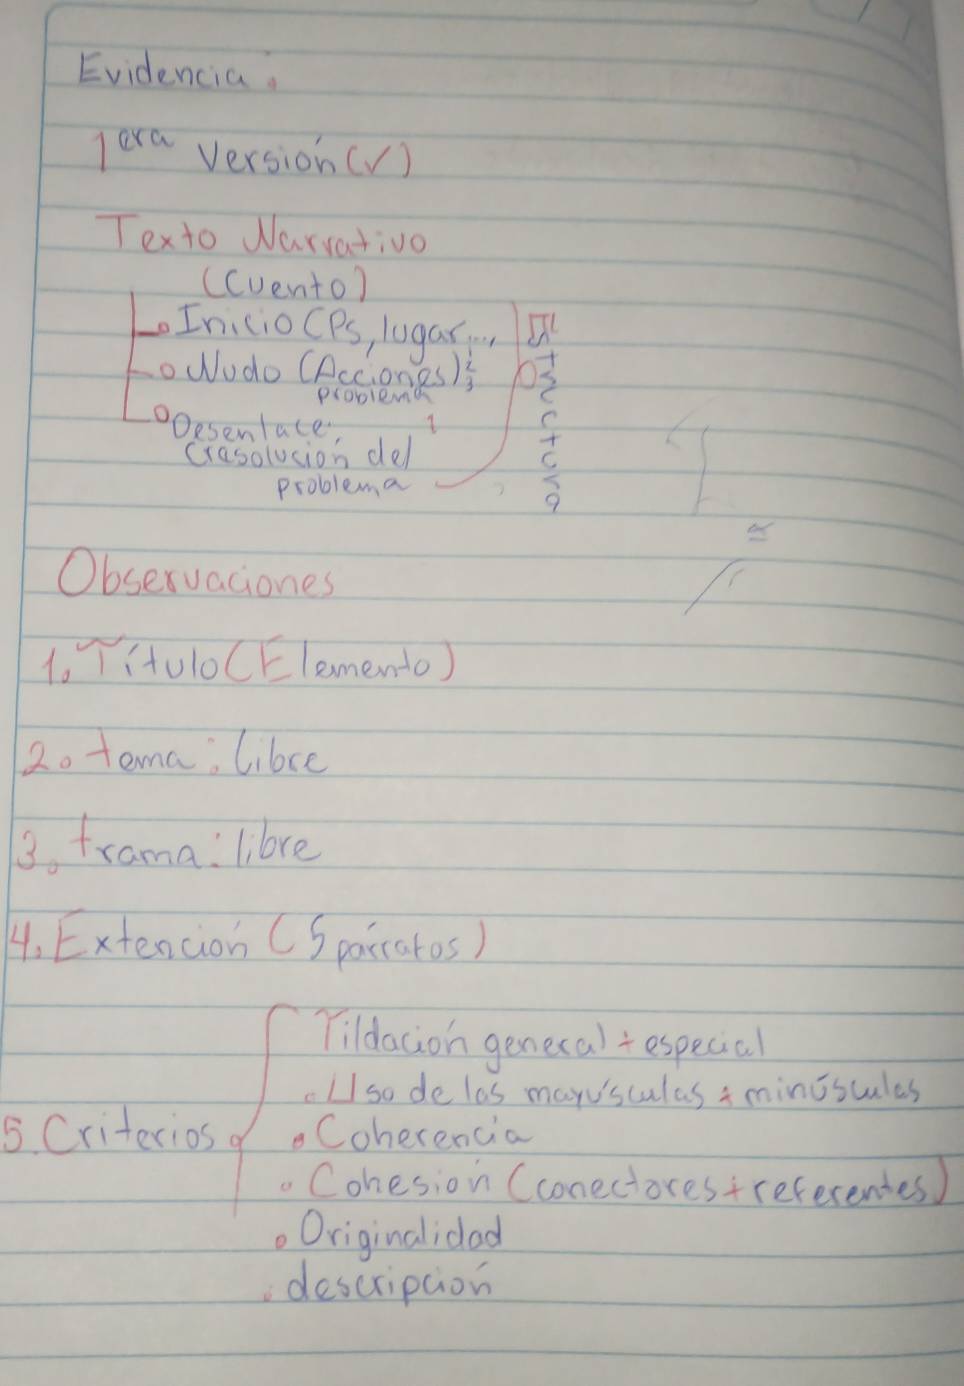 Evidencia:
1era Versión (✓)
Texto Narrativo
(Cuento)
Inicio (Ps, lugar...,
Nudo (Acciones) 1 2 3
problema
Desenlace 1
(resolución del
problema
Estructura
Observaciones
1. Título (Elemento)
2. tema: libre
3. trama: libre
4. Extención (5 párratos)
5. Criterios
Tildación general + especial
• Uso de las mayúsculas + minúsculas
• Coherencia
• Cohesión (conectores + referentes)
• Originalidad
• descripción